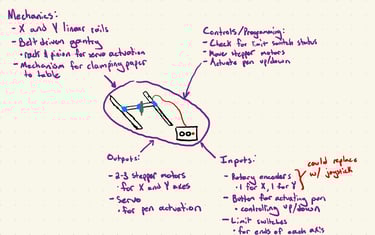 Mechanics:
- X and Y linear rails
- Belt driven gantry
- rack & pinion for servo actuation
- Mechanism for clamping paper
to table
Controls/Programming:
- Check for limit switch status
- Move stepper motors
- Activate pen up/down
Outputs:
- 2-3 stepper motors
- for X and Y axes
- Servo
- for pen actuation
Inputs:
- Rotary encoders
- 1 for X, 1 for Y
- Button for activating pen
- controlling up/down
- Limit switches
- for ends of each axis
could replace
w/ joystick